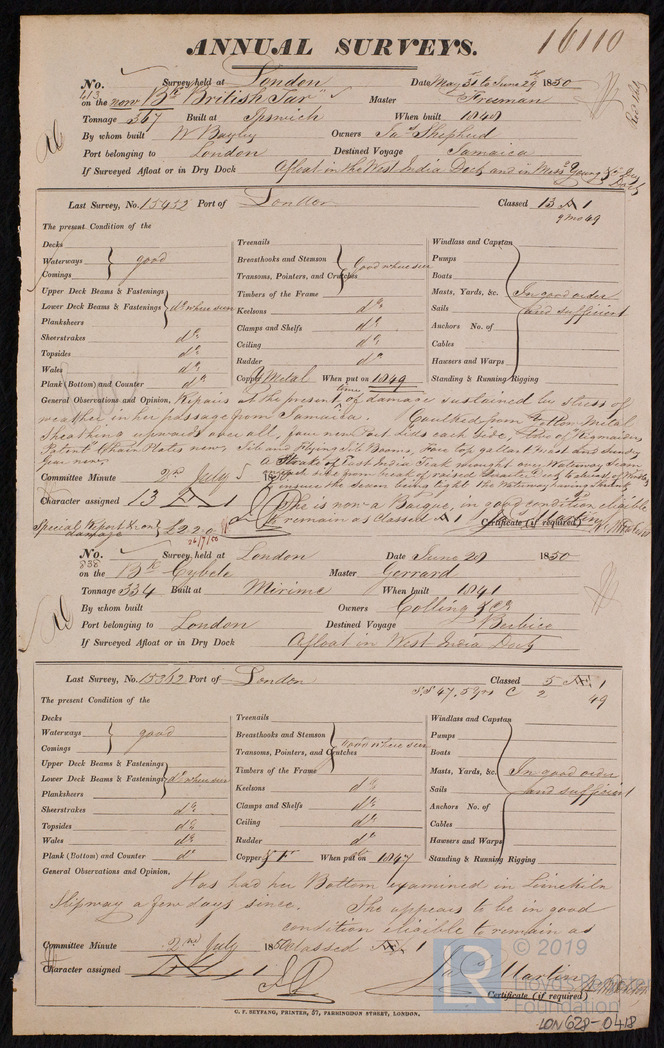 16110
ANNUAL SURVEYS.
No. 413 Survey held at London Date May 31st to June 29th 1850
on the now Bk "British Tar" Master Freeman
Tonnage 367 Built at Ipswich When built 1849
By whom built W Bayley Owners Jas Shepherd
Port belonging to London Destined Voyage Jamaica
If Surveyed Afloat or in Dry Dock Afloat in the West India Dock and in Messrs Young & Co Dry Dock
Last Survey, No. 15452 Port of London Classed 13 A 1
9 mo 49
The present Condition of the
Decks
Waterways
Comings
good
Upper Deck Beams & Fastenings
Lower Deck Beams & Fastenings
Planksheers
do where seen
Sheerstrakes do
Topsides do
Wales do
Plank (Bottom) and Counter do
Treenails
Breasthooks and Stemson
Transoms, Pointers, and Crutches
Timbers of the Frame
Good where seen
Keelsons do
Clamps and Shelfs do
Ceiling do
Rudder do
Copper Y Metal When put on 1849
Windlass and Capstan
Pumps
Boats
Masts, Yards, &c.
Sails
Anchors No. of
Cables
Hawsers and Warps
Standing & Running Rigging
In good order
and sufficient
General Observations and Opinion, Repairs at the present time of damage sustained by stress of
weather in her passage from Jamaica. Caulked from Yellow Metal
Sheathing upwards over all, four new Port Lids each side,
Patent Chain Plates new, Jib and Flying Jib Booms, Fore top gallant Mast and Sundry
Gear new. A Strake of East India Teak wrought over Waterway Seam
Committee Minute 2nd July 1850.
to ensure the seam being tight the Waterway
Character assigned 13 A 1 She is now a Barque, in good condition eligible
to remain as Classed A 1 Certificate (if required)
Special Report & on
damage £2.2.0
26/7/50
No. 838 Survey held at London Date June 29 1850
on the Bk Cybele Master Gerrard
Tonnage 334 Built at Mirimc When built 1841
By whom built Owners Colling & Co
Port belonging to London Destined Voyage Berbice
If Surveyed Afloat or in Dry Dock Afloat in West India Dock
Last Survey, No. 15362 Port of London Classed 5 Æ 1
S.S 47. 5 yrs C 2 49
The present Condition of the
Decks
Waterways
Comings
good
Upper Deck Beams & Fastenings
Lower Deck Beams & Fastenings
Planksheers
do where seen
Sheerstrakes do
Topsides do
Wales do
Plank (Bottom) and Counter do
Treenails
Breasthooks and Stemson
Transoms, Pointers, and Crutches
Timbers of the Frame
Good where seen
Keelsons do
Clamps and Shelfs do
Ceiling do
Rudder do
Copper & F When put on 1847
Windlass and Capstan
Pumps
Boats
Masts, Yards, &c.
Sails
Anchors No. of
Cables
Hawsers and Warps
Standing & Running Rigging
In good order
and sufficient
General Observations and Opinion,
Has had her Bottom examined in Limekiln
Slipway a few days since. She appears to be in good
condition eligible to remain as
Committee Minute 2nd July 1850 classed Æ 1
Character assigned Æ 1
Jas Martin
Certificate (if required)
C. F. SEYFANG, PRINTER, 57, FARRINGDON STREET, LONDON.
© 2019
LR Lloyd's Register
Foundation
LON628-0418